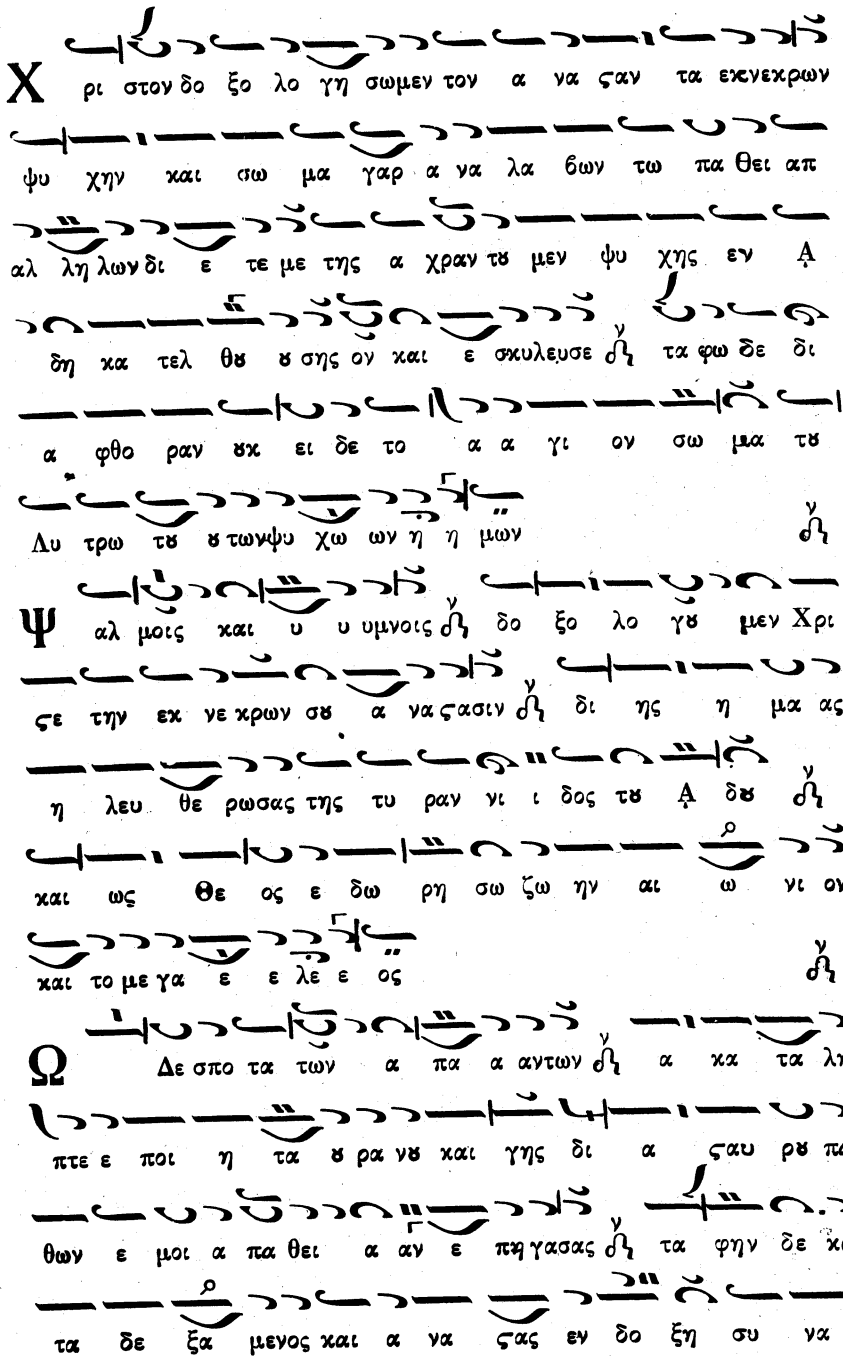 Χ ρι στον δο ξο λο γη σωμεν τον α να ϛαν τα εκνεκρων
ψυ χην και σω μα γαρ α να λα βων τω πα θει απ
αλ λη λων δι ε τε με της α χραν τȣ μεν ψυ χης εν ᾼ
δη κα τελ θȣ ȣ σης ον και ε σκυλευσε ν τα φω δε δι
α φθο ραν ȣκ ει δε το α α γι ον σω μα τȣ
Λυ τρω τȣ ȣ τωνψυ χω ων η η μων ν
Ψ αλ μοις και υ υ υμνοις ν δο ξο λο γȣ μεν Χρι
ϛε την εκ νε κρων σȣ α να ϛασιν ν δι ης η μα ας
η λευ θε ρωσας της τυ ραν νι ι δος τȣ ᾼ δȣ ν
και ως Θε ος ε δω ρη σω ζω ην αι ω νι ον
και το με γα ε ε λε ε ος ν
Ω Δε σπο τα των α πα α αντων ν α κα τα λη
πτε ε ποι η τα ȣ ρα νȣ και γης δι α ϛαυ ρȣ πα
θων ε μοι α πα θει α αν ε πη γασας ν τα φην δε κα
τα δε ξα μενος και α να ϛας εν δο ξη συ να